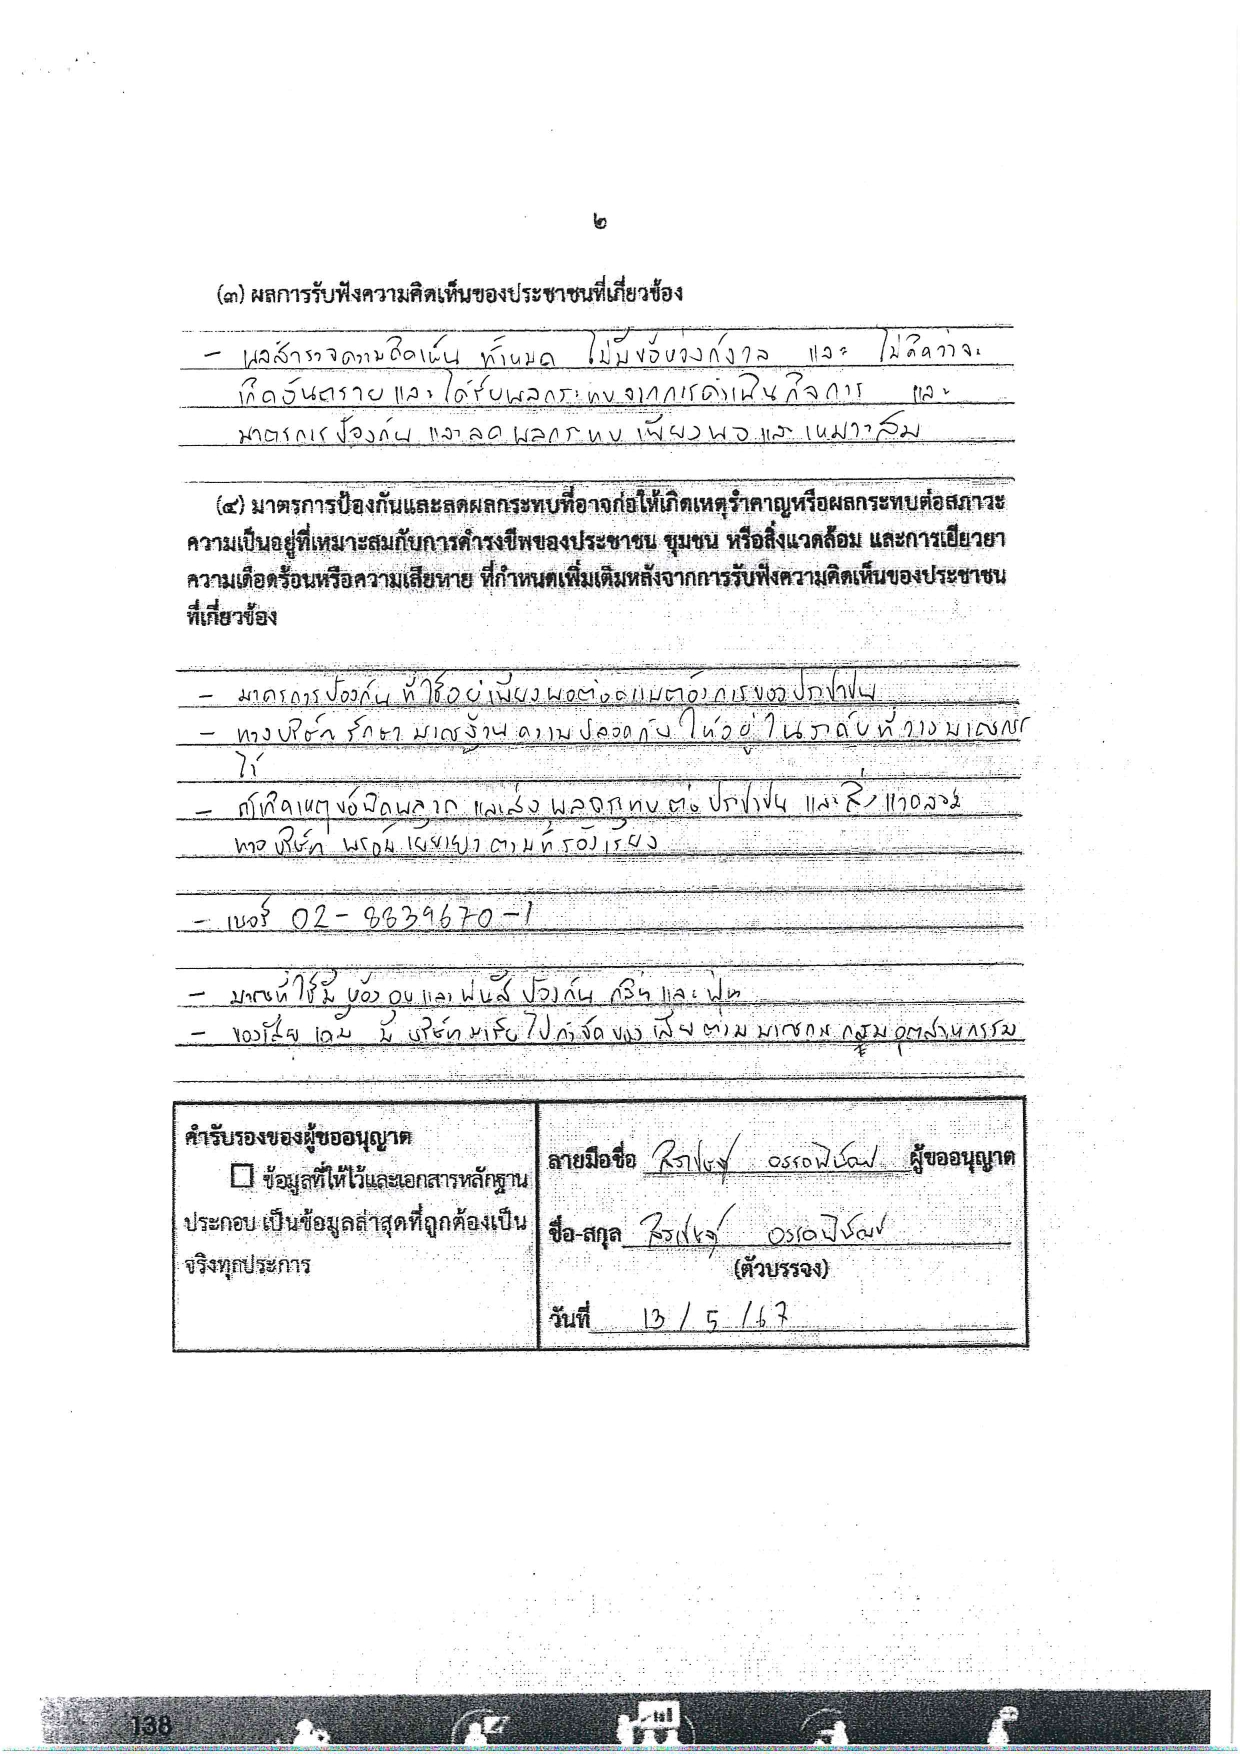 ๒
(๓) ผลการรับฟังความคิดเห็นของประชาชนที่เกี่ยวข้อง
- ผลสำรวจความคิดเห็น ทั้งหมด ไม่มีข้อห่วงกังวล และ ไม่คิดว่าจะ
เกิดอันตราย และ ได้รับผลกระทบจากการดำเนินกิจการ และ
มาตรการป้องกัน และลดผลกระทบ เพียงพอและเหมาะสม
(๔) มาตรการป้องกันและลดผลกระทบที่อาจก่อให้เกิดเหตุรำคาญหรือผลกระทบต่อสภาวะ
ความเป็นอยู่ที่เหมาะสมกับการดำรงชีพของประชาชน ชุมชน หรือสิ่งแวดล้อม และการเยียวยา
ความเดือดร้อนหรือความเสียหาย ที่กำหนดเพิ่มเติมหลังจากการรับฟังความคิดเห็นของประชาชน
ที่เกี่ยวข้อง
- มาตรการป้องกัน ที่ใช้อยู่เพียงพอต่อความต้องการของประชาชน
- ทางบริษัท รักษา มาตรฐาน ความปลอดภัย ให้อยู่ ในระดับที่วาง
ไว้
- ถ้าเกิดเหตุข้อผิดพลาด และส่งผลกระทบต่อ ประชาชน และสิ่งแวดล้อม
ทางบริษัท พร้อมเยียวยา ตามที่ร้องเรียน
- เบอร์ 02-8839670-1
- ที่ใช้มี ห้องอบและพ่นสี ป้องกัน กลิ่น และฝุ่น
- ของเสีย เคมี มี บริษัทมารับ ไปกำจัดของเสียตาม อุตสาหกรรม
คำรับรองของผู้ขออนุญาต
☐ ข้อมูลที่ให้ไว้และเอกสารหลักฐาน
ประกอบ เป็นข้อมูลล่าสุดที่ถูกต้องเป็น
จริงทุกประการ
ลายมือชื่อ ผู้ขออนุญาต
ชื่อ-สกุล
(ตัวบรรจง)
วันที่ 13 / 5 / 67
138